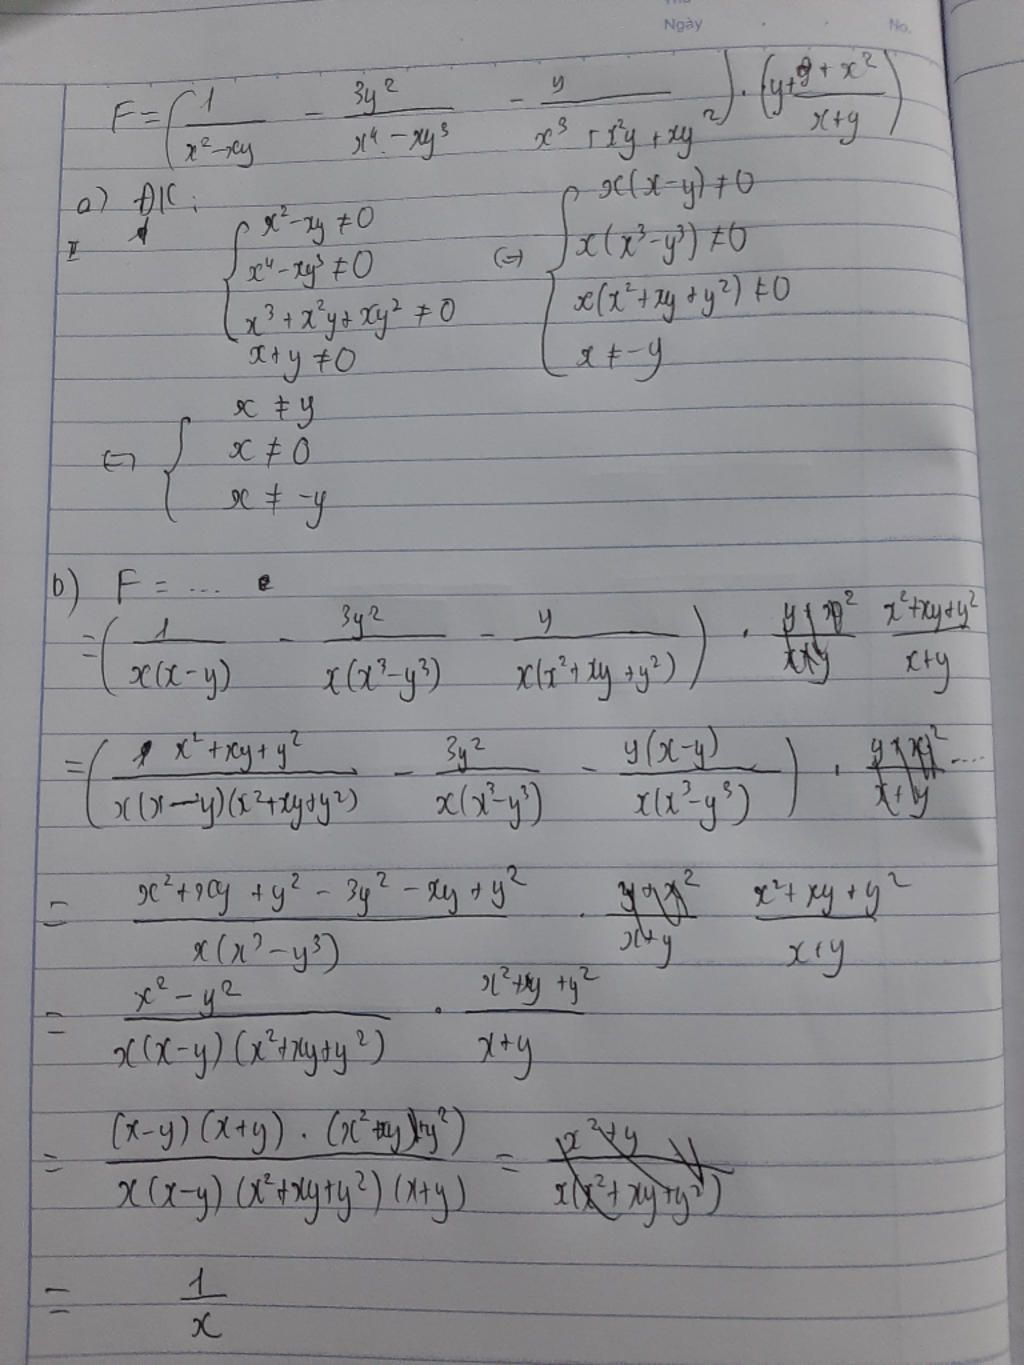 Thứ
Ngày . . No.
F = (1/(x²-xy) - 3y²/(x⁴-xy³) - y/(x³+x²y+xy²)) · (y + (y+x²)/(x+y))
a) ĐK:
{ x²-xy ≠ 0 (=) { x(x-y) ≠ 0
x⁴-xy³ ≠ 0 x(x³-y³) ≠ 0
x³+x²y+xy² ≠ 0 x(x²+xy+y²) ≠ 0
x+y ≠ 0 x ≠ -y
(=) { x ≠ y
x ≠ 0
x ≠ -y
b) F = ...
= (1/(x(x-y)) - 3y²/(x(x³-y³)) - y/(x(x²+xy+y²))) · (x²+xy+y²)/(x+y)
= ((x²+xy+y²)/(x(x-y)(x²+xy+y²)) - 3y²/(x(x³-y³)) - y(x-y)/(x(x³-y³))) · ....
= (x²+xy+y²-3y²-xy+y²)/(x(x³-y³)) · (x²+xy+y²)/(x+y)
= (x²-y²)/(x(x-y)(x²+xy+y²)) · (x²+xy+y²)/(x+y)
= ((x-y)(x+y)·(x²+xy+y²))/(x(x-y)(x²+xy+y²)(x+y)) =
= 1/x